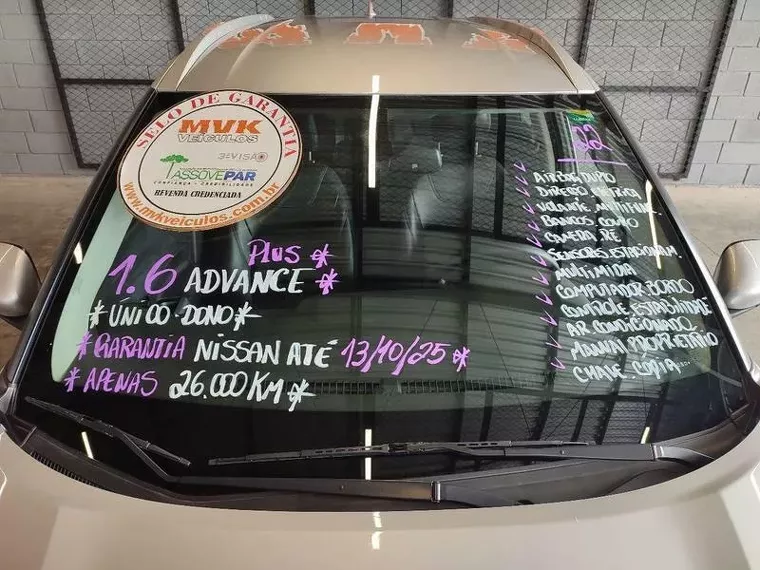 SELO DE GARANTIA
MVK
VEÍCULOS
3ª VISÃO
ASSOVEPAR
CONFIANÇA - CREDIBILIDADE
REVENDA CREDENCIADA
www.mvkveiculos.com.br
Plus *
1.6 ADVANCE *
* ÚNICO DONO *
* GARANTIA NISSAN ATÉ 13/10/25 *
* APENAS 26.000 KM *
22
AIRBAG DUPLO
DIREÇÃO ELÉTRICA
VOLANTE MULTIFUNC.
BANCOS COURO
CAMERA RÉ
SENSORES ESTACIONAM.
MULTIMIDIA
COMPUTADOR BORDO
CONTROLE ESTABILIDADE
AR CONDICIONADO
MANUAL PROPRIETÁRIO
CHAVE CÓPIA